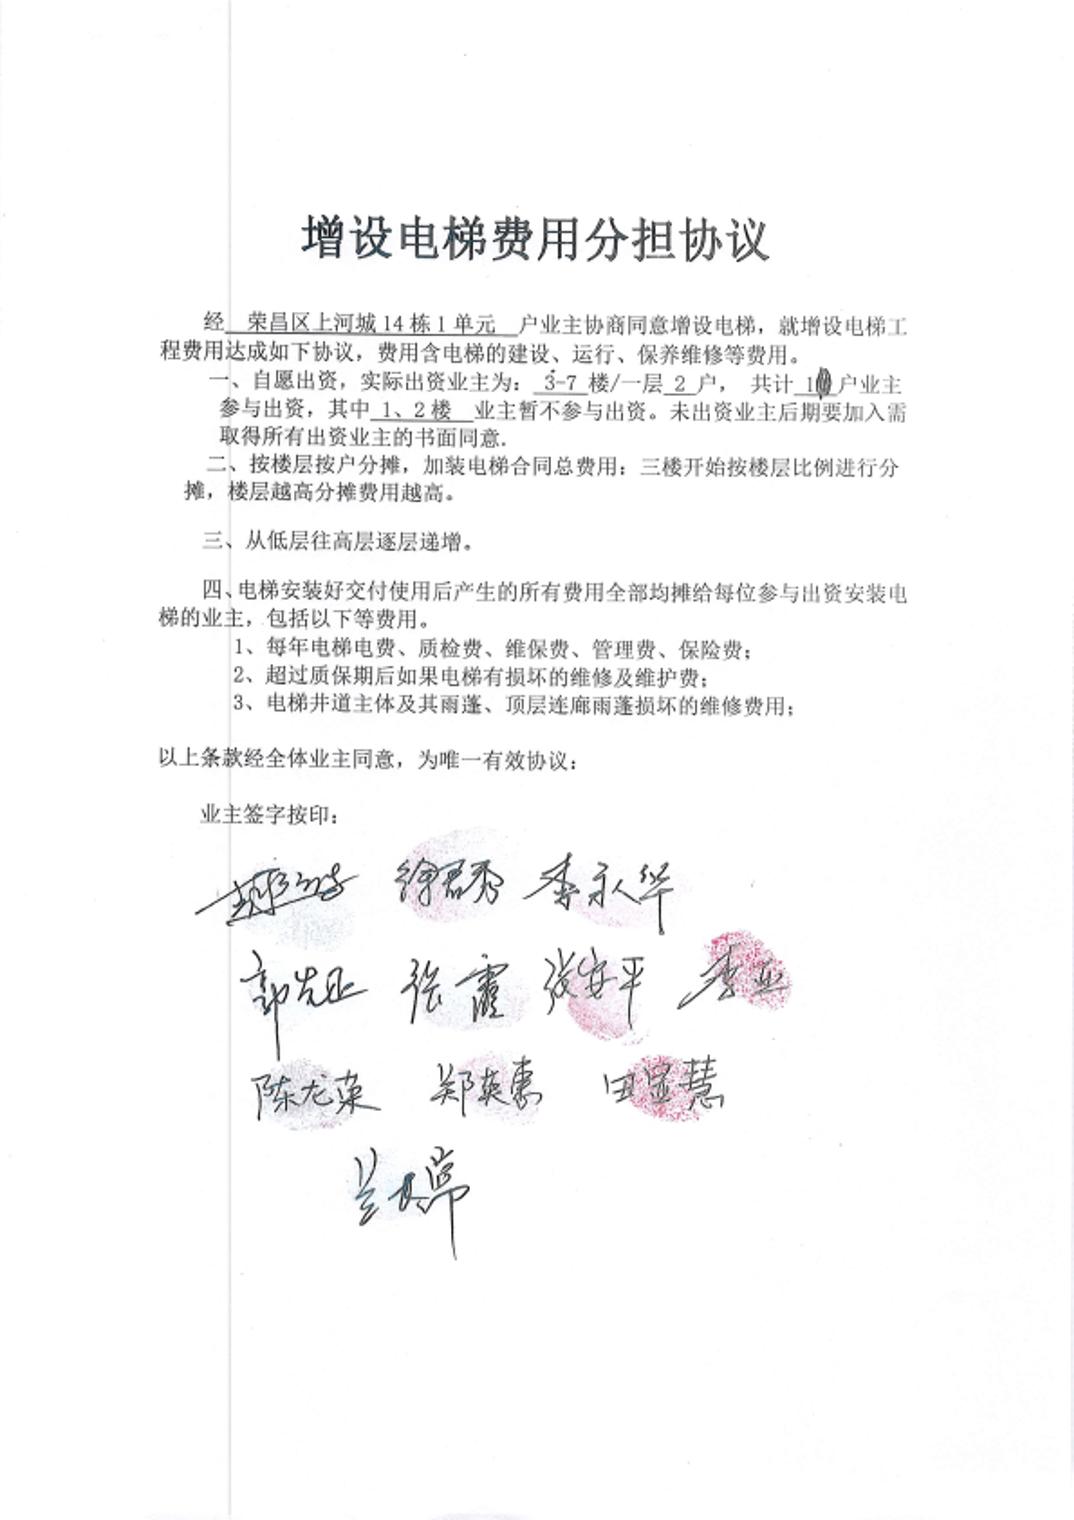 增设电梯费用分担协议
经 荣昌区上河城14栋1单元 户业主协商同意增设电梯，就增设电梯工
程费用达成如下协议，费用含电梯的建设、运行、保养维修等费用。
一、自愿出资，实际出资业主为：3-7楼/一层 2 户， 共计 1 户业主
参与出资，其中 1、2楼 业主暂不参与出资。未出资业主后期要加入需
取得所有出资业主的书面同意.
二、按楼层按户分摊，加装电梯合同总费用：三楼开始按楼层比例进行分
摊，楼层越高分摊费用越高。
三、从低层往高层逐层递增。
四、电梯安装好交付使用后产生的所有费用全部均摊给每位参与出资安装电
梯的业主，包括以下等费用。
1、每年电梯电费、质检费、维保费、管理费、保险费；
2、超过质保期后如果电梯有损坏的维修及维护费；
3、电梯井道主体及其雨蓬、顶层连廊雨蓬损坏的维修费用；
以上条款经全体业主同意，为唯一有效协议：
业主签字按印：
徐君秀 李永华
张霞 张安平 李业
陈龙荣 郑英惠 田显慧